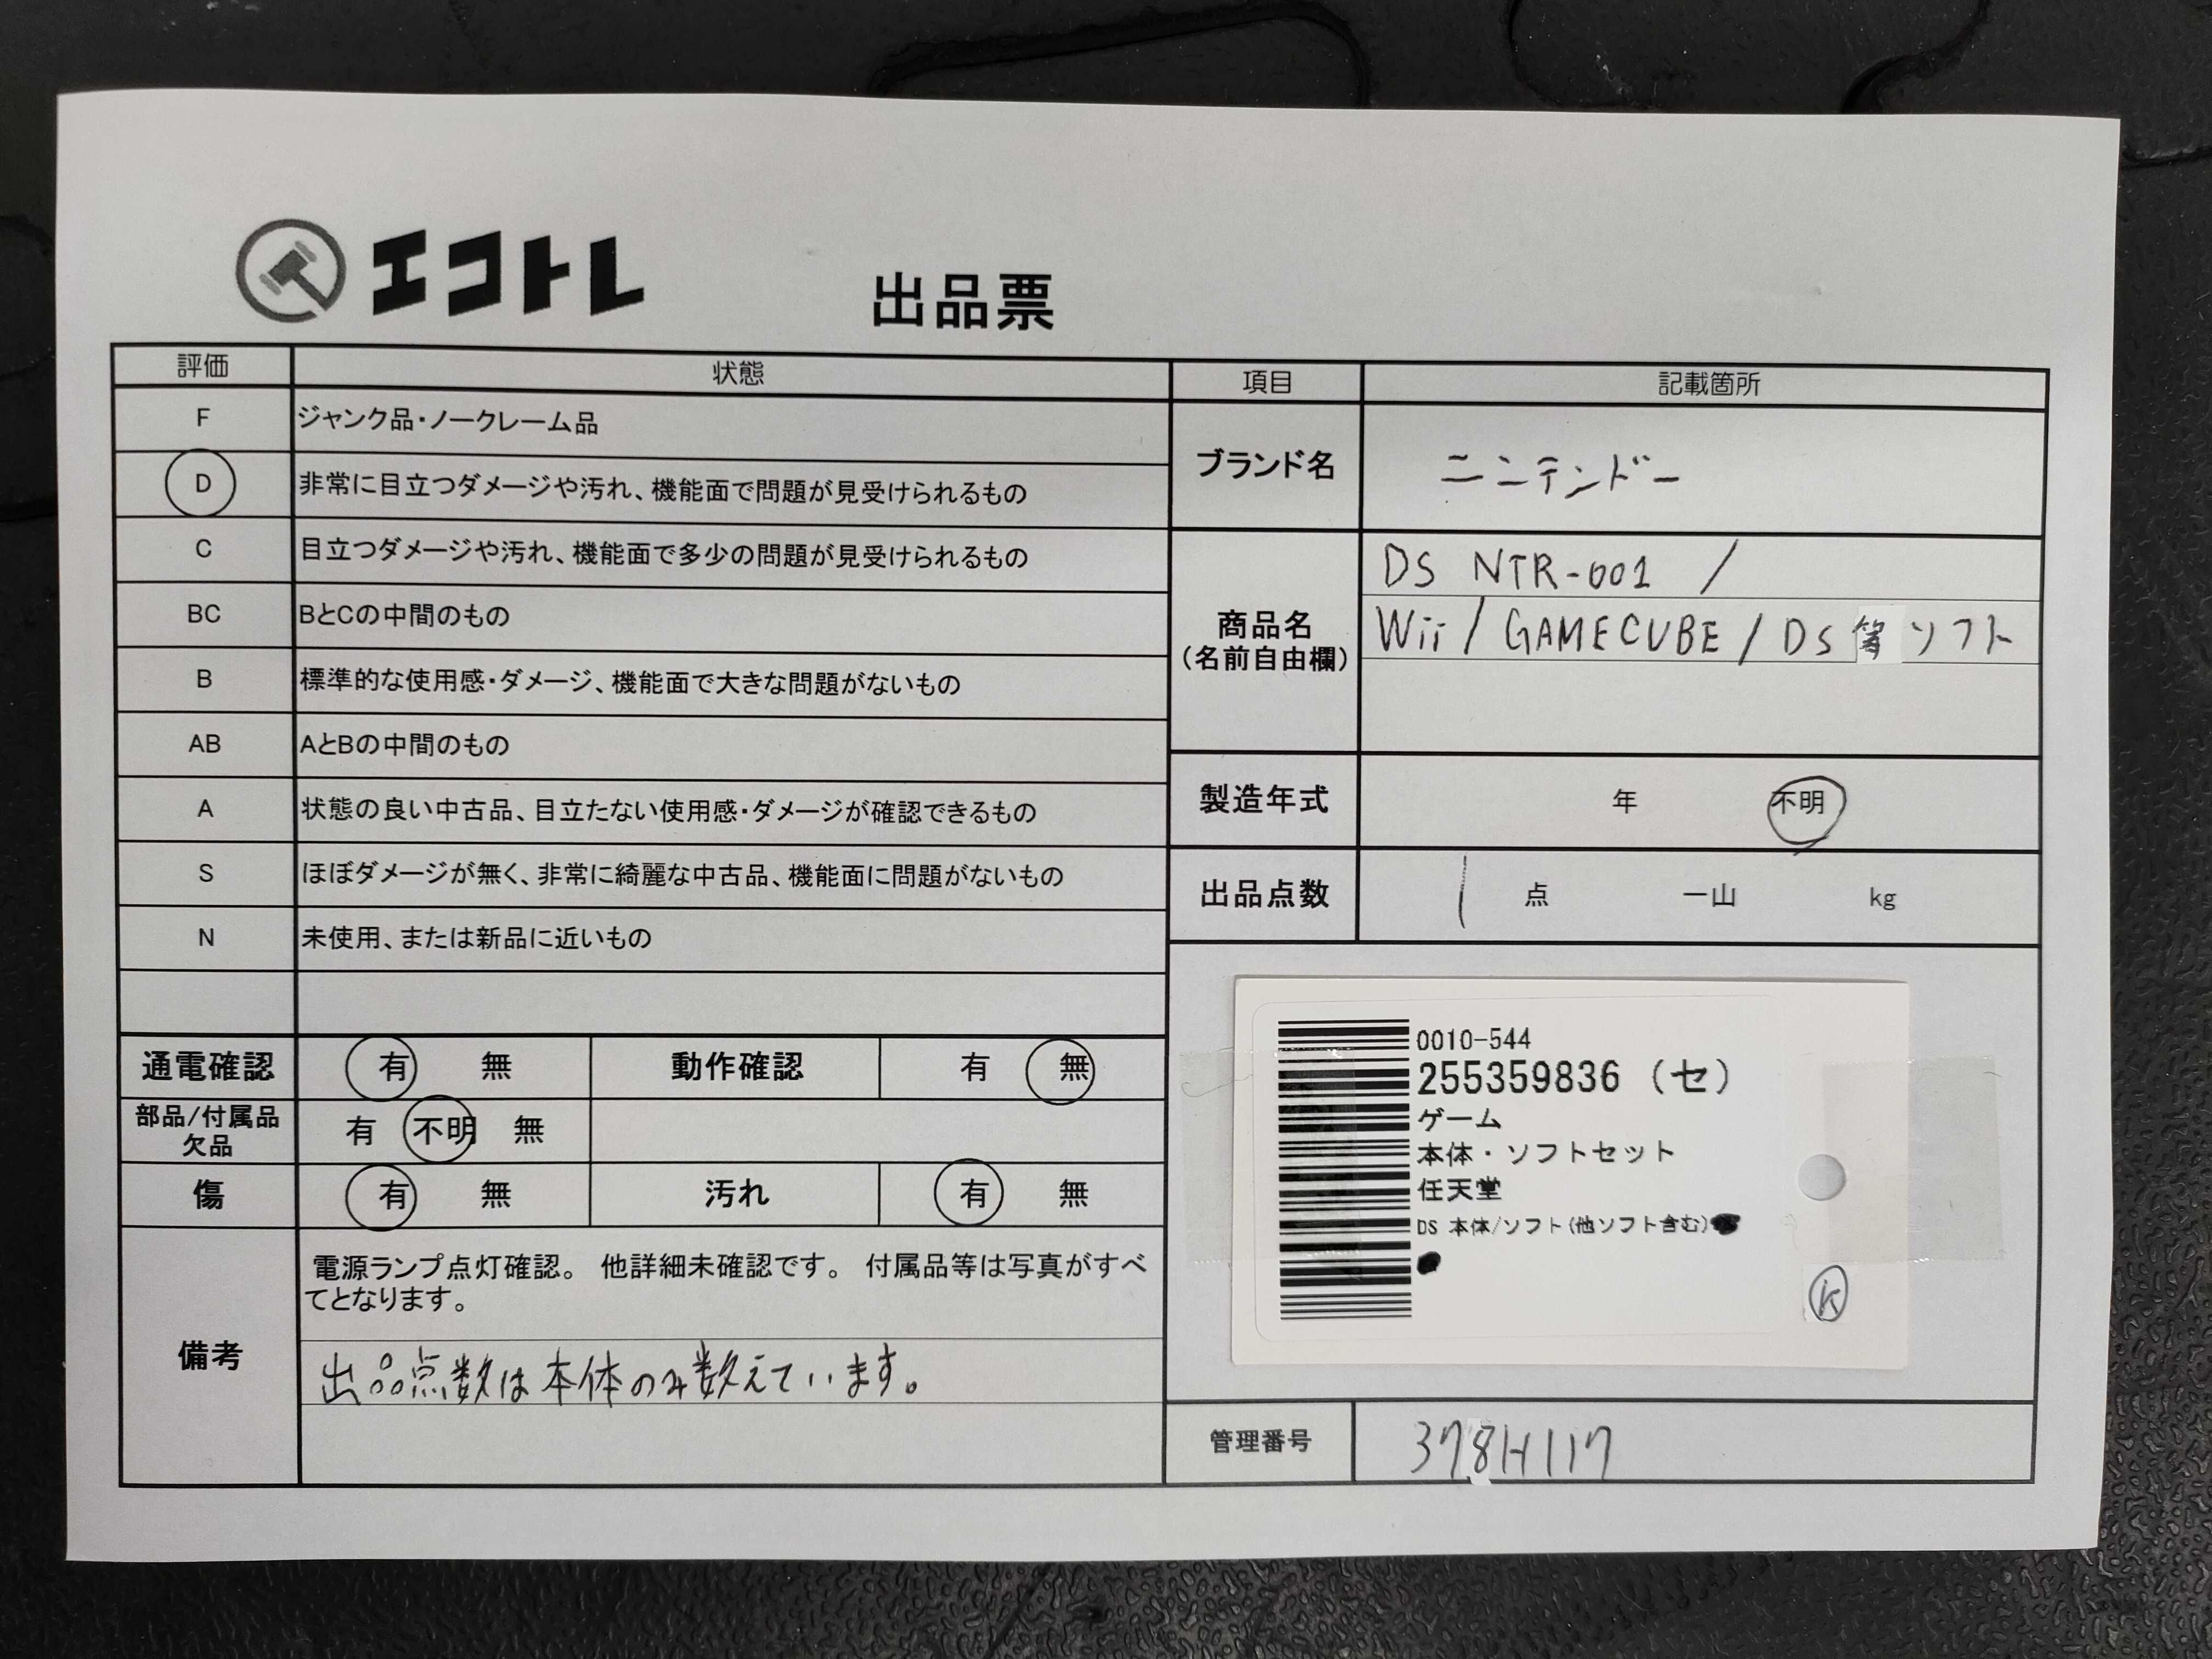 エコトレ
出品票
評価 状態
F ジャンク品・ノークレーム品
D 非常に目立つダメージや汚れ、機能面で問題が見受けられるもの
C 目立つダメージや汚れ、機能面で多少の問題が見受けられるもの
BC BとCの中間のもの
B 標準的な使用感・ダメージ、機能面で大きな問題がないもの
AB AとBの中間のもの
A 状態の良い中古品、目立たない使用感・ダメージが確認できるもの
S ほぼダメージが無く、非常に綺麗な中古品、機能面に問題がないもの
N 未使用、または新品に近いもの
通電確認 有 無 動作確認 有 無
部品/付属品
欠品 有 不明 無
傷 有 無 汚れ 有 無
備考
電源ランプ点灯確認。 他詳細未確認です。 付属品等は写真がすべ
てとなります。
出品点数は本体のみ数えています。
項目 記載箇所
ブランド名 ニンテンドー
商品名
(名前自由欄)
DS NTR-001 /
Wii / GAMECUBE / DS 等 ソフト
製造年式 年 不明
出品点数 1 点 一山 kg
0010-544
255359836 (セ)
ゲーム
本体・ソフトセット
任天堂
DS 本体/ソフト(他ソフト含む)
K
管理番号 378H117